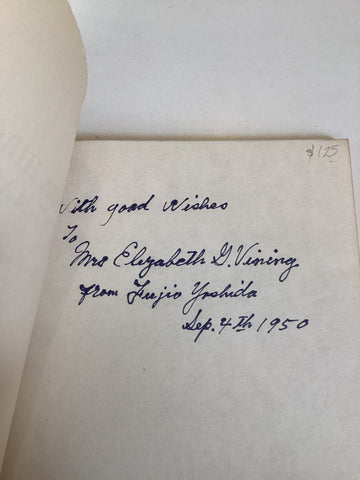 $125.
With good Wishes
To
Mrs Elizabeth G. Vining
from Fujio Yoshida
Sep. 4th 1950